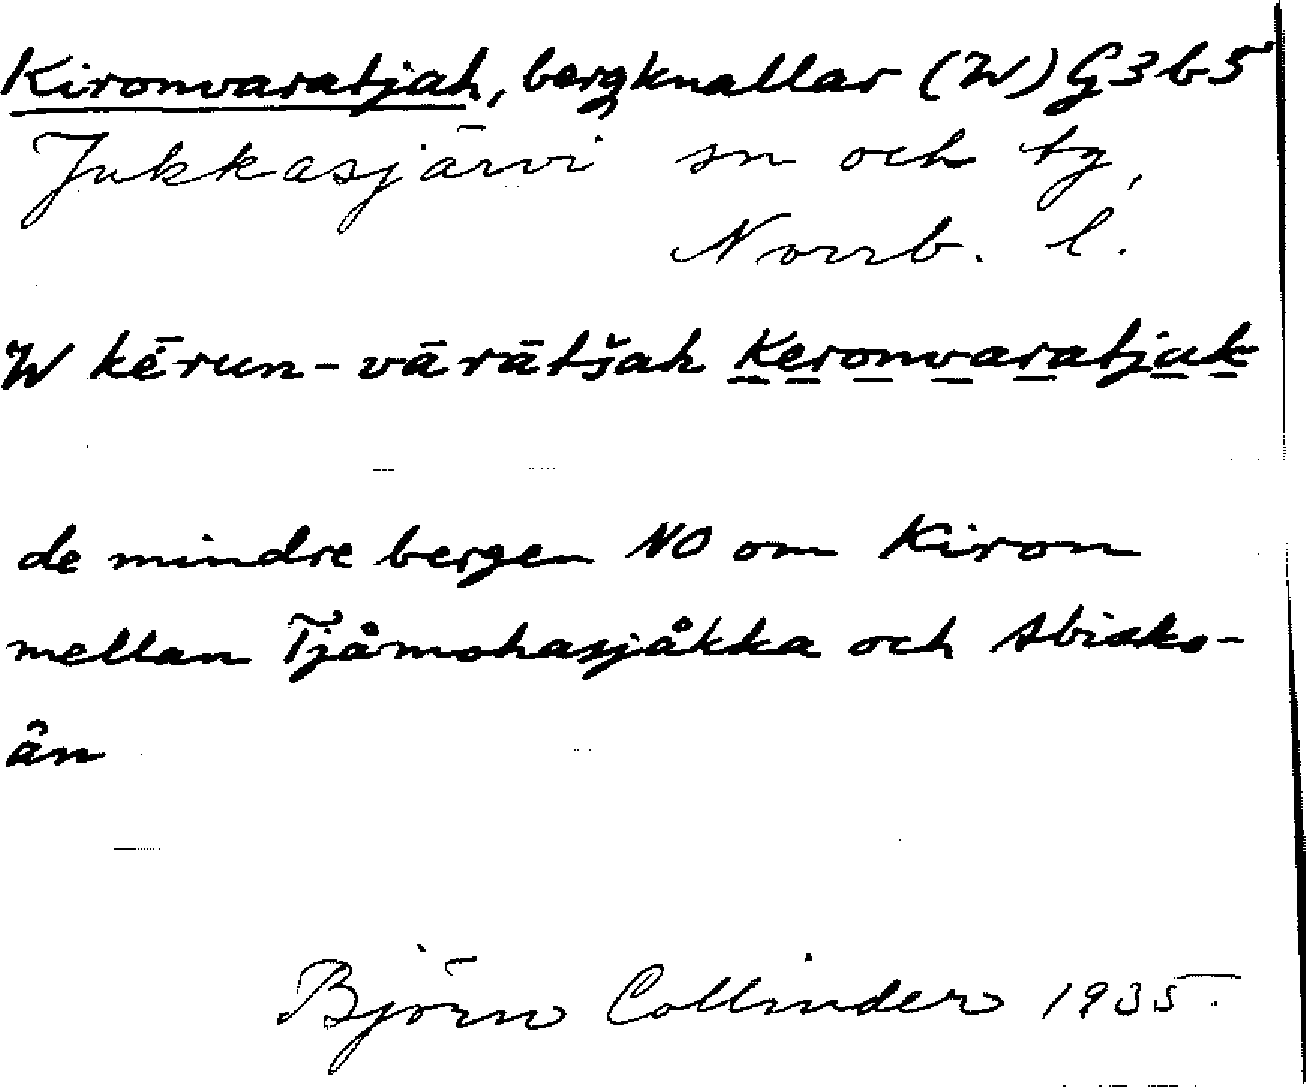 Kironvaratjah, bergknallar (W) G3b5
Jukkasjärvi sn och tg,
Norrb. l.
W kērun-vārātšah Keronvaratjak
de mindre bergen NO om Kiron
mellan Tjåmohasjåkka och Abisko-
ån
Björn Collinder 1935.